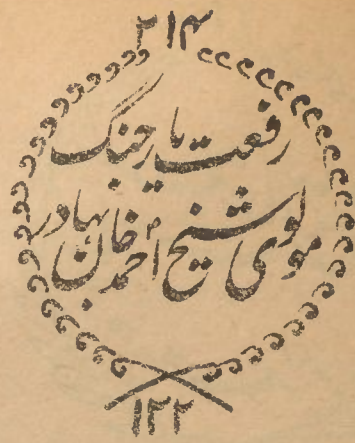 ۲۱۴
رفعت یار جنگ
مولوی شیخ احمد خان بہادر
۱۲۲